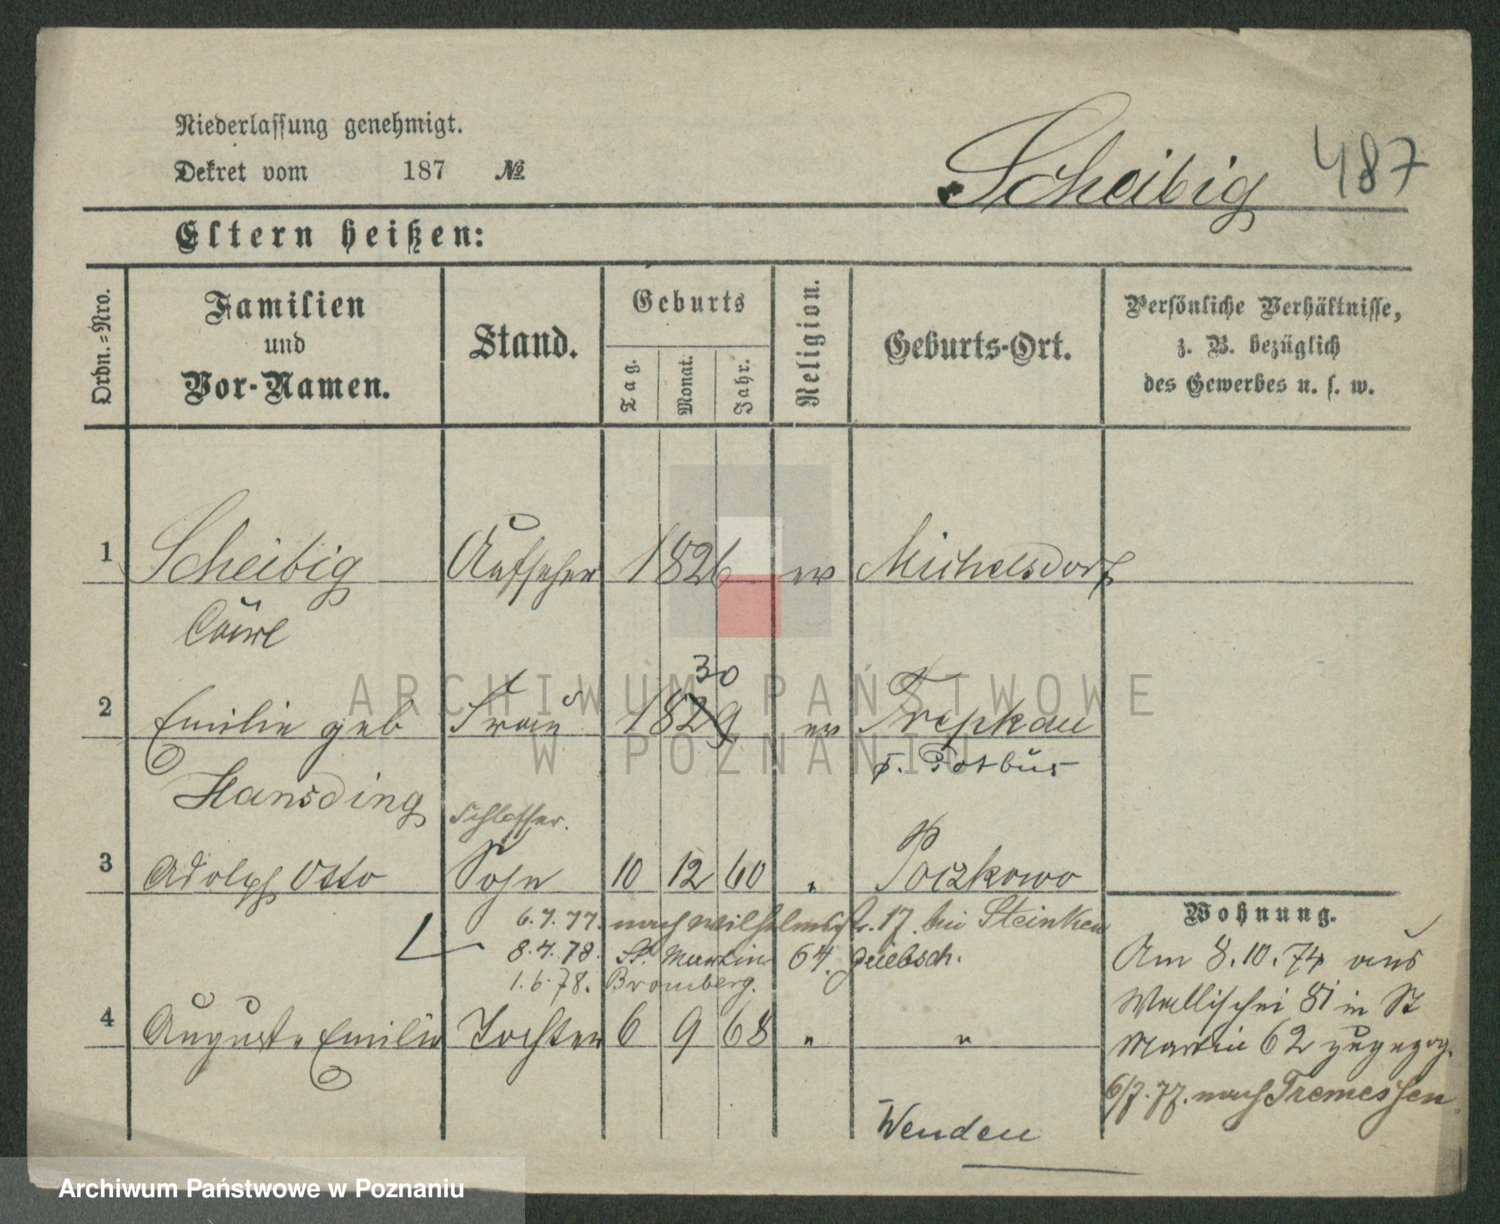 Niederlassung genehmigt.
Dekret vom 187 №
Scheibig 487
Eltern heißen:
Ordn.-Nro.
Familien
und
Vor-Namen.
Stand.
Geburts
Tag.
Monat.
Jahr.
Religion.
Geburts-Ort.
Persönliche Verhältnisse,
z. B. bezüglich
des Gewerbes u. s. w.
1 Scheibig Aufseher 1826 ev Michelsdorf
Carl
30
2 Emilie geb Frau 1829 ev Trepkau
Hansding
Schlosser.
3 Adolph Otto Sohn 10 12 60 " Poczkowo
6.7.77. nach Wilhelmstr. 17. bei Steinken
8.4.78. St. Martin 64
1.6.78. Bromberg.
4 Auguste Emilie Tochter 6 9 68 " "
Wenden
Wohnung.
Am 8.10.74 aus
Wallischei in St
Martin 62 zugezog.
6/7.77. nach Tremessen
ARCHIWUM PAŃSTWOWE
W POZNANIU
Archiwum Państwowe w Poznaniu